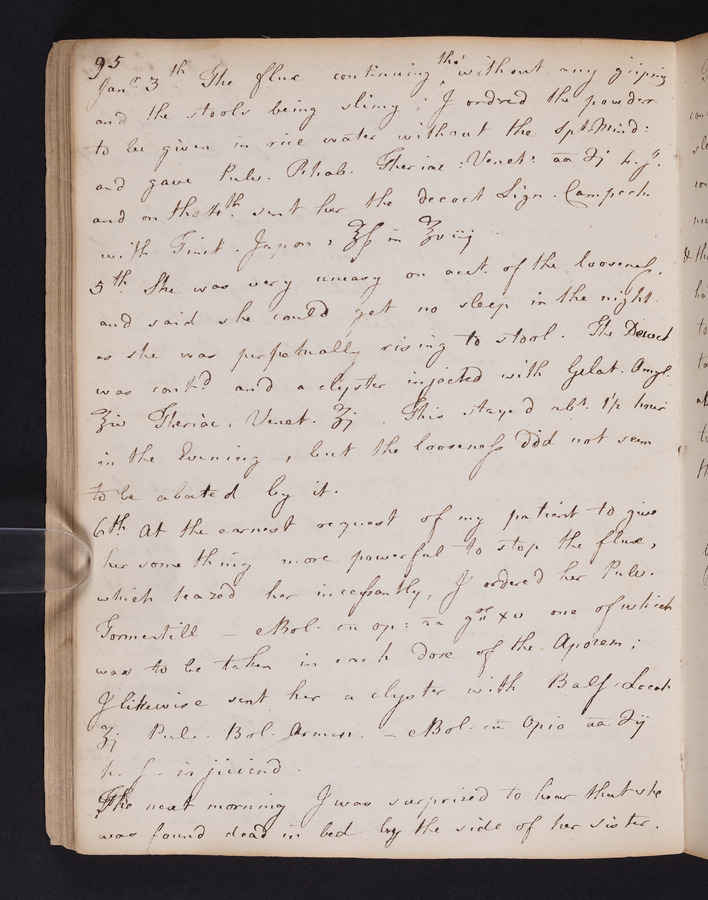 95
Janry 3th The flux continuing tho' without any griping
and the stools being slimy; I ordred the powder
to be given in rice water without the Spt. Mind:
and gave Pulv. Rhab. Theriac: Venet: aa ʒj h. f.
and on the 4th sent her the decoct Lign. Campech.
with Tinct. Japon, ʒſ in ℥viij
5th She was very uneasy on acct. of the looseness,
and said she could get no sleep in the night
as she was perpetually rising to stool. The Decoct
was contd and a clyster injected with Gelat. Amyl.
℥iv Theriac. Venet. ʒj. This stayed abt. 1½ hour
in the Evening, but the looseness did not seem
to be abated by it.
6th At the earnest request of my patient to give
her something more powerful to stop the flux,
which teazed her incessantly, I ordered her Pulv.
Tormentill — eBol. cū op: aa grs xv one of which
was to be taken in each dose of the Apozem;
I likewise sent her a clyster with Bals. Locat.
℥j Pulv. Bol. Armen. — eBol. cū Opio aa ʒij
h. f. injiciend.
The next morning I was surprized to hear that she
was found dead in bed by the side of her sister.